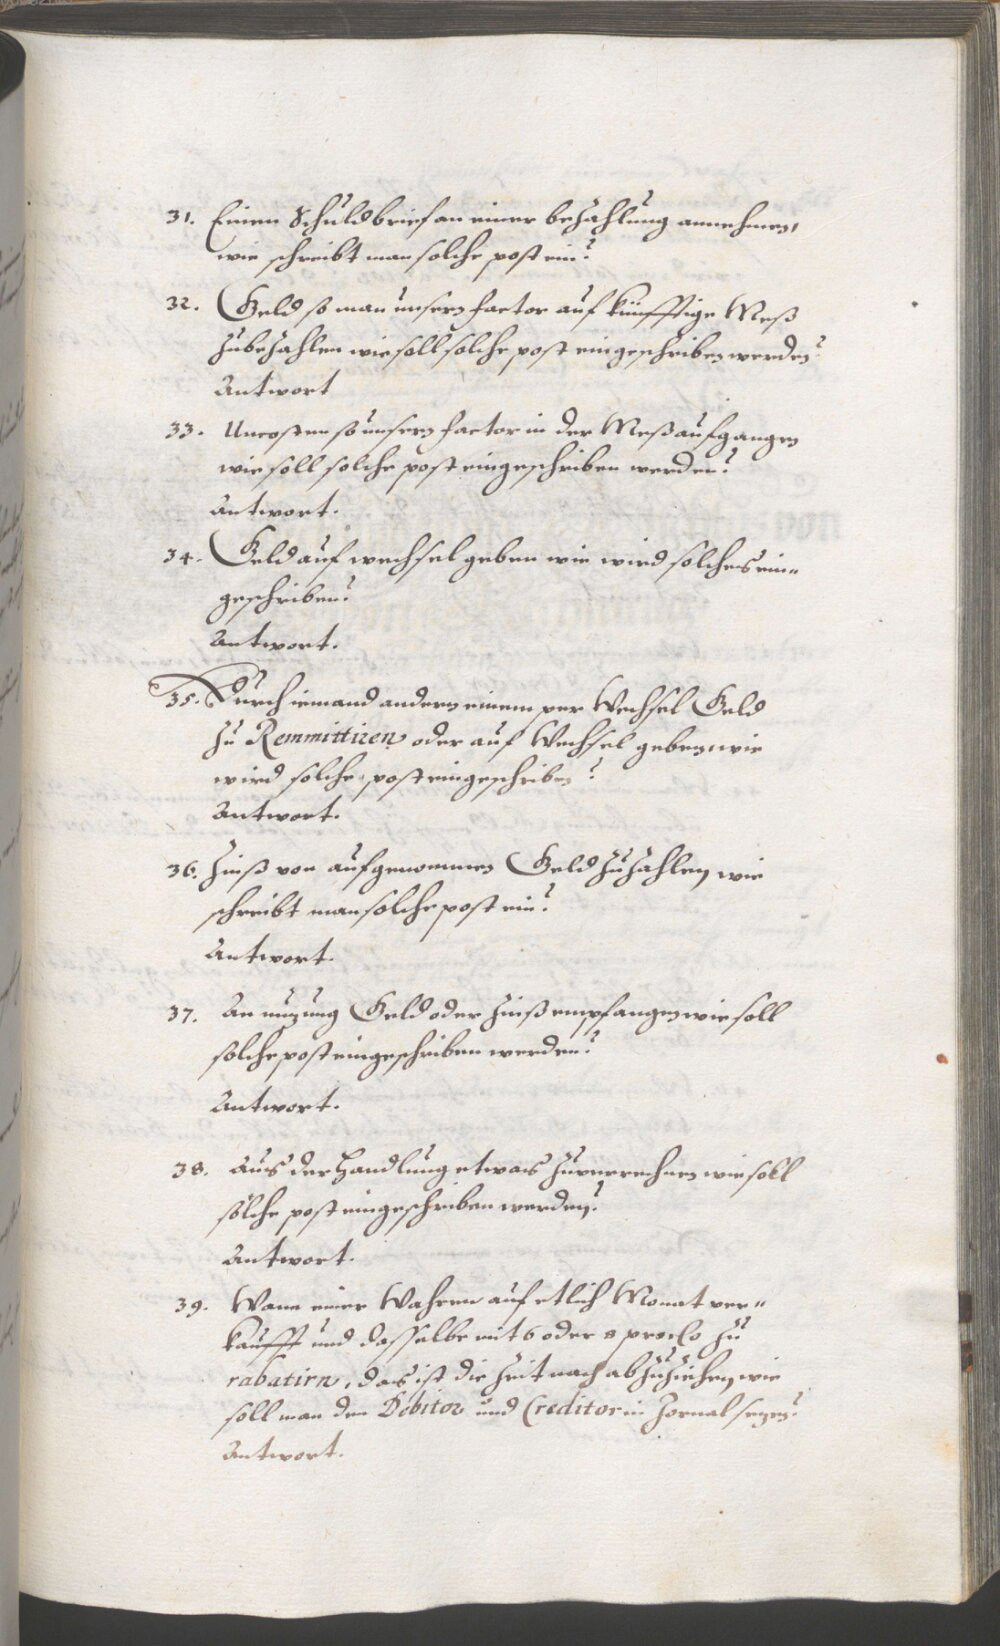 31. Einen Schuldbrief an einer bezahlung annehmen,
wie schreibt man solche post ein?
32. Geld so man unserm factor auf künfftige Meß
zubezahlen wie soll solche post eingeschriben werden?
Antwort
33. Uncosten so unserm factor in der Meß aufgangen
wie soll solche post eingeschriben werden?
Antwort.
34. Geld auf wechsel geben wie wird solches ein-
geschriben?
Antwort.
35. Durch iemand andern einem per Wechsel Geld
zu Remmittiren oder auf Wechsel geben, wie
wird solche post eingeschriben?
Antwort.
36. Zinß von aufgenommen Geld zuzahlen, wie
schreibt man solche post ein?
Antwort.
37. An nuzung Geld oder Zinß empfangen wie soll
solche post eingeschriben werden?
Antwort.
38. Auß der Handlung etwas zuverrechnen wie soll
solche post eingeschriben werden?
Antwort.
39. Wann einer Wahren auf etlich Monat ver-
kaufft und dasselbe mit 6 oder 8 procto zu
rabatirn, das ist die Zeit nach abzuziehen, wie
soll man den Debitor und Creditor in Jornal sezen?
Antwort.